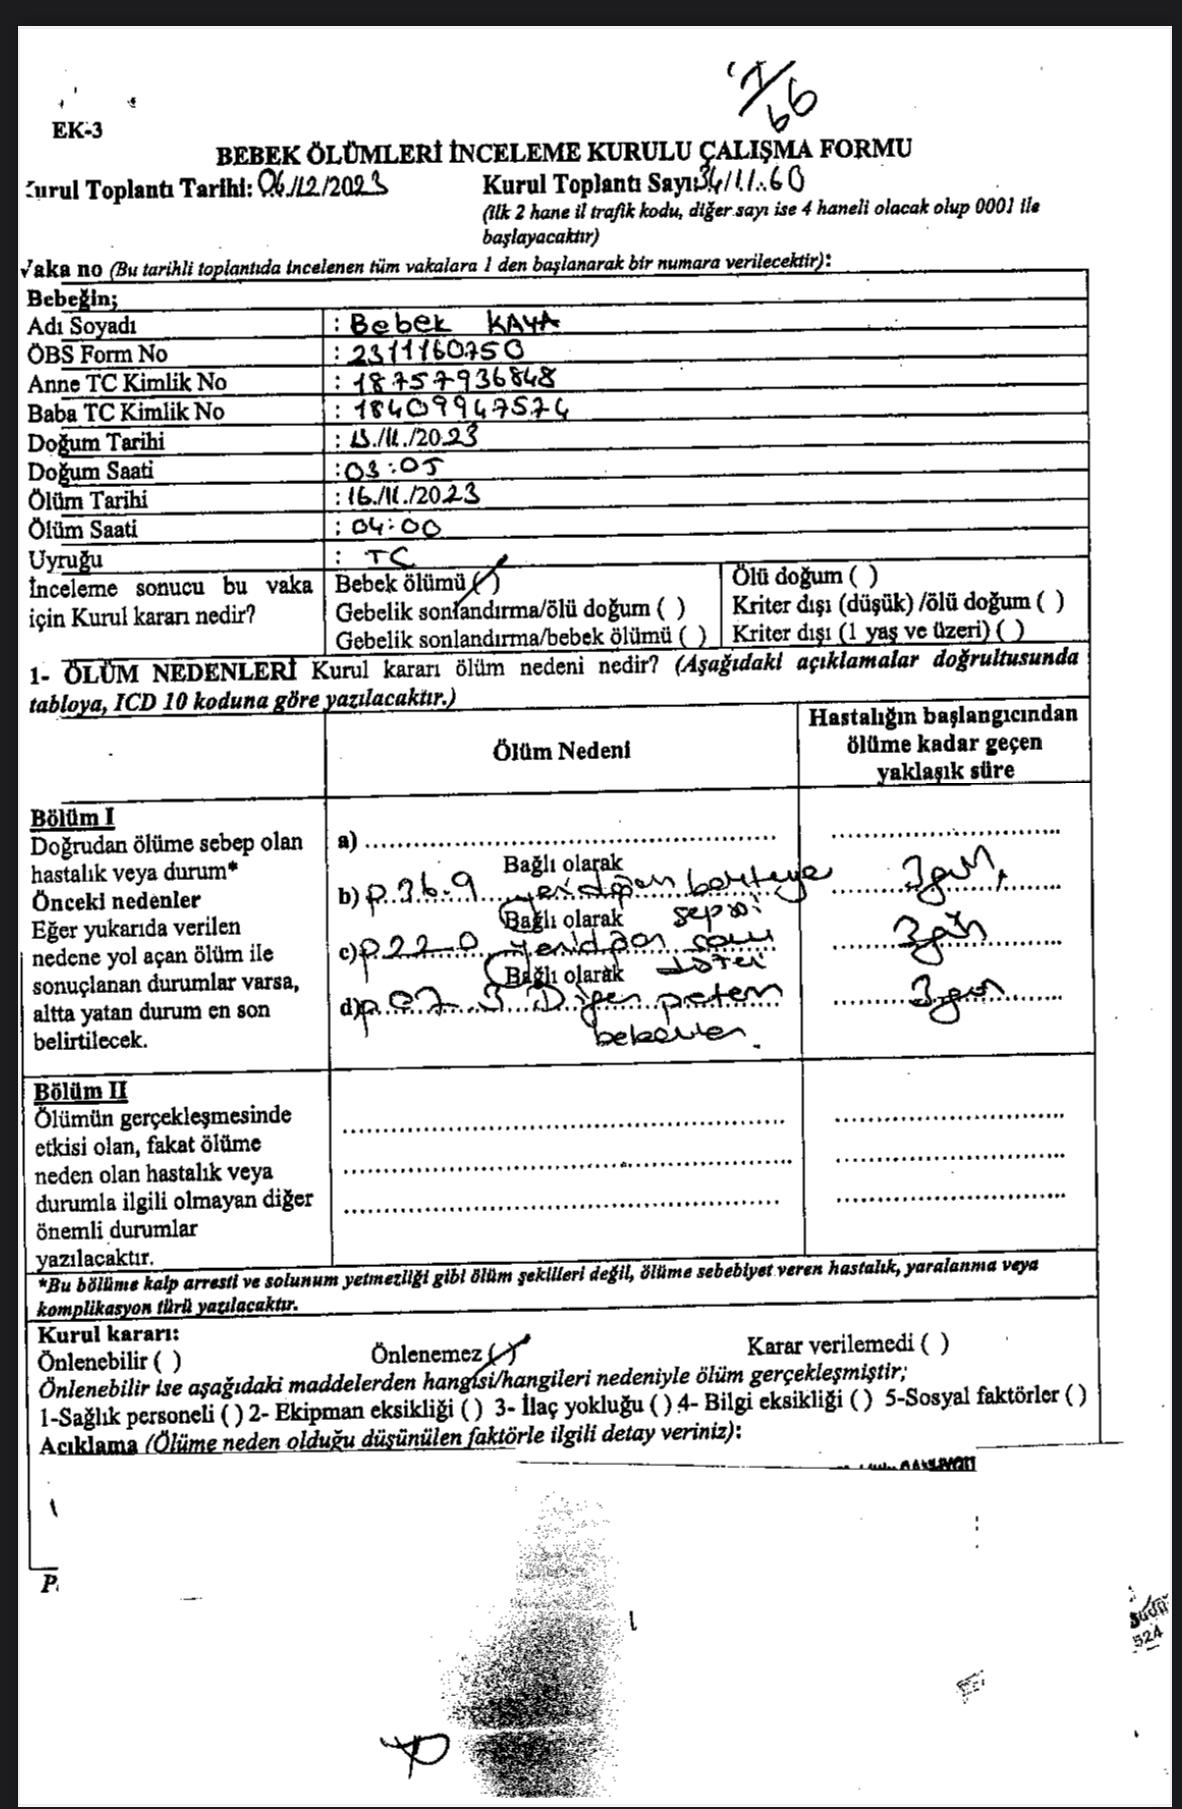 7/66
EK-3
BEBEK ÖLÜMLERİ İNCELEME KURULU ÇALIŞMA FORMU
Kurul Toplantı Tarihi: 06/12/2023 Kurul Toplantı Sayı: 34/11..60
(İlk 2 hane il trafik kodu, diğer sayı ise 4 haneli olacak olup 0001 ile
başlayacaktır)
Vaka no (Bu tarihli toplantıda incelenen tüm vakalara 1 den başlanarak bir numara verilecektir):
Bebeğin;
Adı Soyadı : Bebek KAYA
ÖBS Form No : 2311160750
Anne TC Kimlik No : 18757936848
Baba TC Kimlik No : 18409947574
Doğum Tarihi : 13./11./2023
Doğum Saati : 03:05
Ölüm Tarihi : 16./11./2023
Ölüm Saati : 04:00
Uyruğu : TC
İnceleme sonucu bu vaka için Kurul kararı nedir?
Bebek ölümü (/) Ölü doğum ( )
Gebelik sonlandırma/ölü doğum ( ) Kriter dışı (düşük) /ölü doğum ( )
Gebelik sonlandırma/bebek ölümü ( ) Kriter dışı (1 yaş ve üzeri) ( )
1- ÖLÜM NEDENLERİ Kurul kararı ölüm nedeni nedir? (Aşağıdaki açıklamalar doğrultusunda
tabloya, ICD 10 koduna göre yazılacaktır.)
Ölüm Nedeni
Hastalığın başlangıcından
ölüme kadar geçen
yaklaşık süre
Bölüm I
Doğrudan ölüme sebep olan
hastalık veya durum*
Önceki nedenler
Eğer yukarıda verilen
nedene yol açan ölüm ile
sonuçlanan durumlar varsa,
altta yatan durum en son
belirtilecek.
a) ..............................
Bağlı olarak
b) P.36.9 yenidoğan bakteriye 3 gün
Bağlı olarak sepsisi
c) P22-0 yenidoğan 3 gün
Bağlı olarak
d) P07.3 Diğer preterm 3 gün
bebekler.
Bölüm II
Ölümün gerçekleşmesinde
etkisi olan, fakat ölüme
neden olan hastalık veya
durumla ilgili olmayan diğer
önemli durumlar
yazılacaktır.
*Bu bölüme kalp arresti ve solunum yetmezliği gibi ölüm şekilleri değil, ölüme sebebiyet veren hastalık, yaralanma veya
komplikasyon türü yazılacaktır.
Kurul kararı:
Önlenebilir ( ) Önlenemez (/) Karar verilemedi ( )
Önlenebilir ise aşağıdaki maddelerden hangisi/hangileri nedeniyle ölüm gerçekleşmiştir;
1-Sağlık personeli ( ) 2- Ekipman eksikliği ( ) 3- İlaç yokluğu ( ) 4- Bilgi eksikliği ( ) 5-Sosyal faktörler ( )
Açıklama (Ölüme neden olduğu düşünülen faktörle ilgili detay veriniz):
P
524